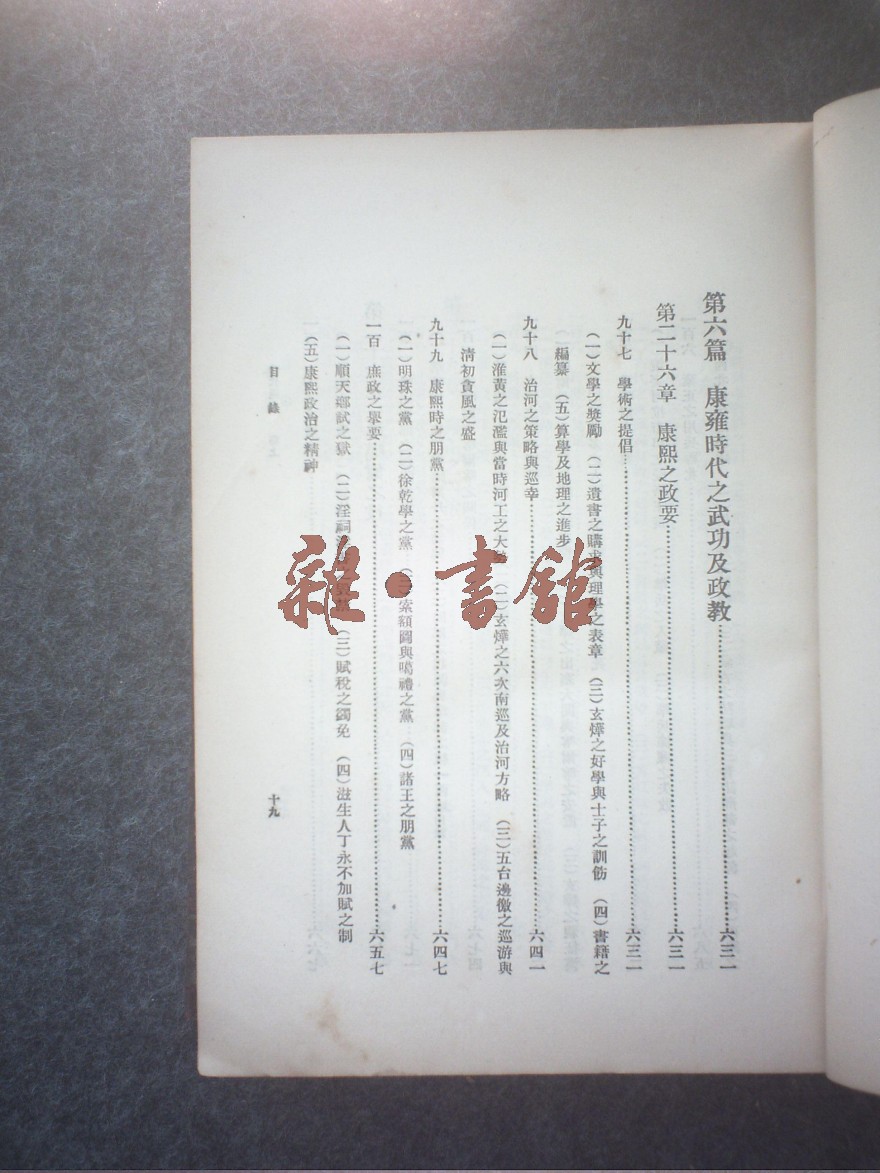 第六篇　康雍時代之武功及政教……六三一
第二十六章　康熙之政要……六三一
九十七　學術之提倡……六三一
（一）文學之獎勵　（二）遺書之購求與理學之表章　（三）玄燁之好學與士子之訓飭　（四）書籍之
編纂　（五）算學及地理之進步
九十八　治河之策略與巡幸……六四一
（一）淮黃之氾濫與當時河工之大　（二）玄燁之六次南巡及治河方略　（三）五台邊徼之巡游與
清初貪風之盛
九十九　康熙時之朋黨……六四七
（一）明珠之黨　（二）徐乾學之黨　（三）索額圖與噶禮之黨　（四）諸王之朋黨
一百　庶政之舉要……六五七
（一）順天鄉試之獄　（二）淫祠　（三）賦稅之蠲免　（四）滋生人丁永不加賦之制
（五）康熙政治之精神
目錄
十九
雜·書館